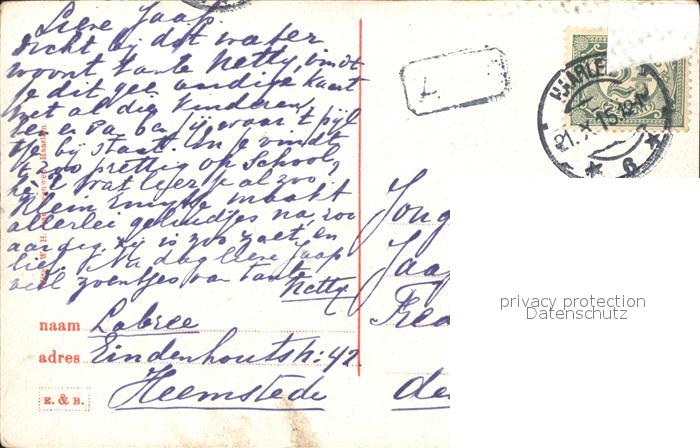 Lieve Jaap.
Dicht bij dit water
woont tante Netty, vindt
je dit geen aardige kaart
met al die kinderen,
ben en Pa, ba jij waar 't pijl
tje bij staat. En je vindt
't zoo prettig op School,
hè? Wat leer je al zoo,
Klein Emyke maakt
allerlei geluidjes na, zoo
aardig. Zij is zoo zoet en
lief. Nu dag lieve Jaap
veel zoentjes van tante
Netty
naam Labree
adres Eindenhoutstr: 42.
Heemstede
E. & B.
Jong
Jaap
Fred
de
HAARLEM
21.
6
2½
privacy protection
Datenschutz